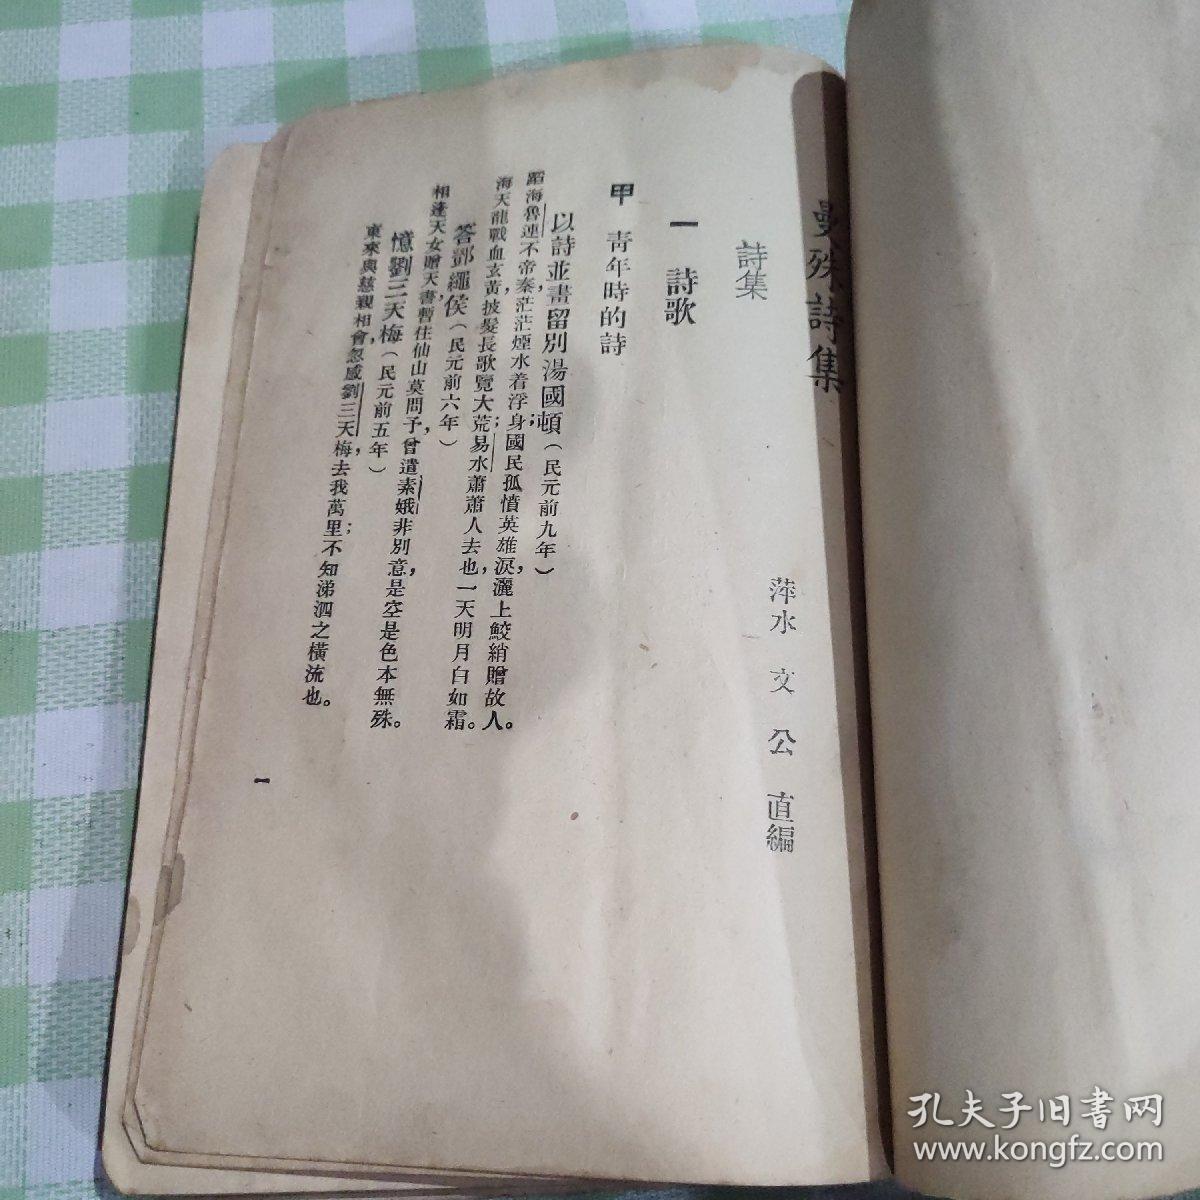 曼殊詩集
萍水 文 公 直編
詩集
一 詩歌
甲 靑年時的詩
以詩並畫留別湯國頓（民元前九年）
蹈海魯連不帝秦，茫茫煙水着浮身；國民孤憤英雄淚，灑上鮫綃贈故人。
海天龍戰血玄黃，披髮長歌覽大荒；易水蕭蕭人去也，一天明月白如霜。
答鄧繩侯（民元前六年）
相逢天女贈天書，暫住仙山莫問予，曾遣素娥非別意，是空是色本無殊。
憶劉三天梅（民元前五年）
東來與慈親相會，忽感劉三天梅，去我萬里；不知涕泗之橫流也。
一
孔夫子旧書网
www.kongfz.com